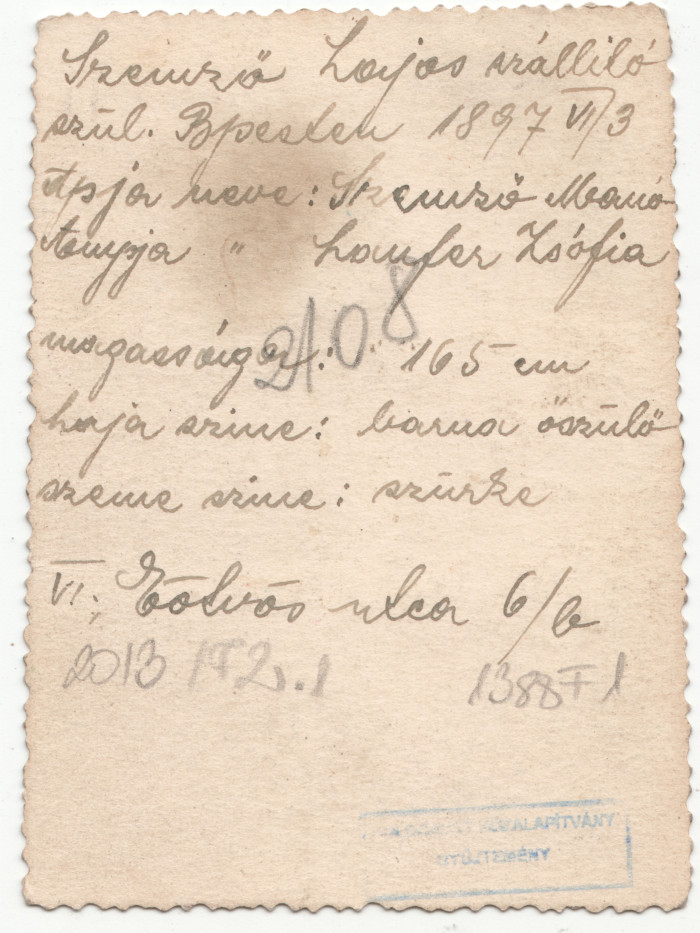 Szemző Lajos szállító
szül. Bpesten 1897 VI/3
Apja neve: Szemző Manó
Anyja " Laufer Zsófia
2108
magassága: 165 cm
haja szine: barna őszülő
szeme szine: szürke
VI. Eötvös utca 6/b
2013
1388
KÖZALAPÍTVÁNY
GYŰJTEMÉNY